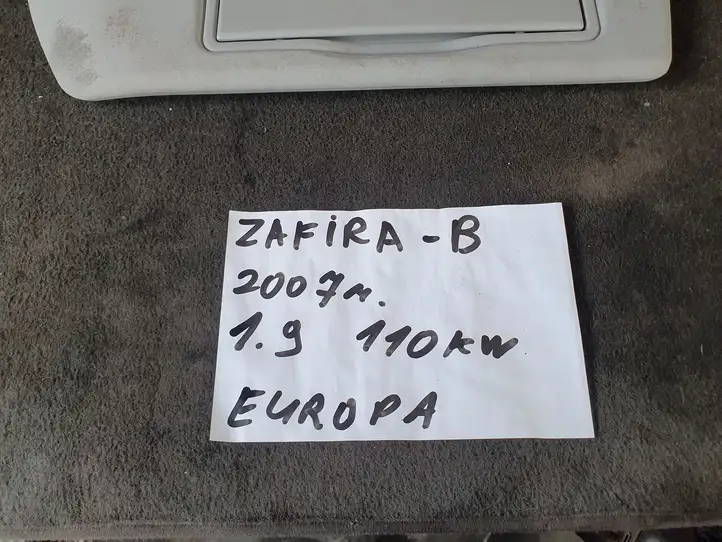 ZAFiRA - B
2007м.
1.9 110 KW
EUROPA